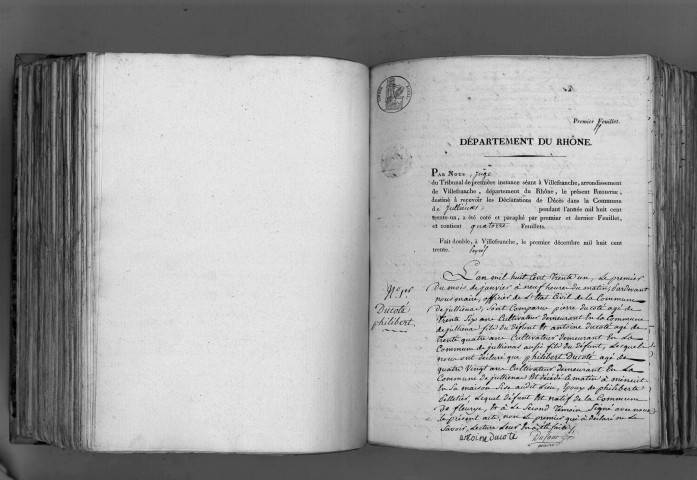 Premier Feuillet.
DÉPARTEMENT DU RHÔNE.
PAR NOUS, juge
du Tribunal de première instance séant à Villefranche, arrondissement
de Villefranche, département du Rhône, le présent REGISTRE,
destiné à recevoir les Déclarations de Décès dans la Commune
de Julliénas, pendant l'année mil huit cent
trente-un, a été coté et paraphé par premier et dernier Feuillet,
et contient quatorze Feuillets.
Fait double, à Villefranche, le premier décembre mil huit cent
trente.
N.º 1er
Ducoté
philibert.
L'an mil huit Cent trente un, Le premier
du mois de janvier à neuf heures du matin, pardevant
nous maire, officier de L'Etat Civil de la Commune
de julliénas, sont Comparus pierre ducoté agé de
trente Six ans Cultivateur demeurant En la Commune
de julliénas fils du défunt et antoine ducoté agé de
trente quatre ans Cultivateur demeurant En La
Commune de julliénas aussi fils du défunt, Lesquels
nous ont déclaré que philibert Ducoté agé de
quatre Vingt ans Cultivateur demeurant En La
Commune de julliénas est décédé le matin à minuit
En Sa maison Sise audit Lieu, Epoux de philiberte
pelletier, Lequel défunt est natif de la Commune
de fleurye, et a Le Second témoin Signé avec nous
le présent acte, non Le premier qui a déclaré ne Le
Savoir, Lecture Leur en a été faite
antoine ducoté Dufour
maire